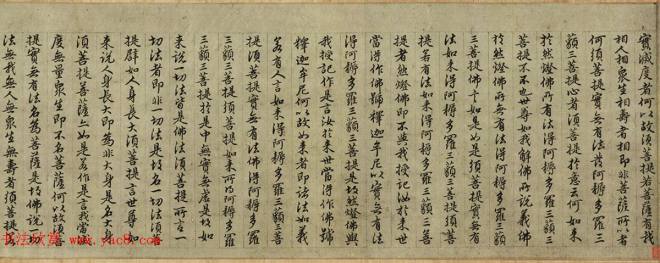 實滅度者何以故須菩提若菩薩有我
相人相衆生相壽者相即非菩薩所以者
何須菩提實無有法發阿耨多羅三
藐三菩提心者須菩提於意云何如来
於然燈佛所有法得阿耨多羅三藐三
菩提不不也世尊如我解佛所說義佛
於然燈佛所無有法得阿耨多羅三藐
三菩提佛言如是如是須菩提實無有
法如来得阿耨多羅三藐三菩提須菩
提若有法如来得阿耨多羅三藐三菩
提者然燈佛即不與我授記汝於来世
當得作佛號釋迦牟尼以實無有法
得阿耨多羅三藐三菩提是故然燈佛與
我授記作是言汝於来世當得作佛號
釋迦牟尼何以故如来者即諸法如義
若有人言如来得阿耨多羅三藐三菩
提須菩提實無有法佛得阿耨多羅
三藐三菩提須菩提如来所得阿耨多羅
三藐三菩提於是中無實無虛是故如
来說一切法皆是佛法須菩提所言一
切法者即非一切法是故名一切法須菩
提譬如人身長大須菩提言世尊如
来說人身長大即為非大身是名大身
須菩提菩薩亦如是若作是言我當
度無量衆生即不名菩薩何以故須菩
提實無有法名為菩薩是故佛說一切
法無我無人無衆生無壽者須菩提
书法欣赏
www.yac8.com